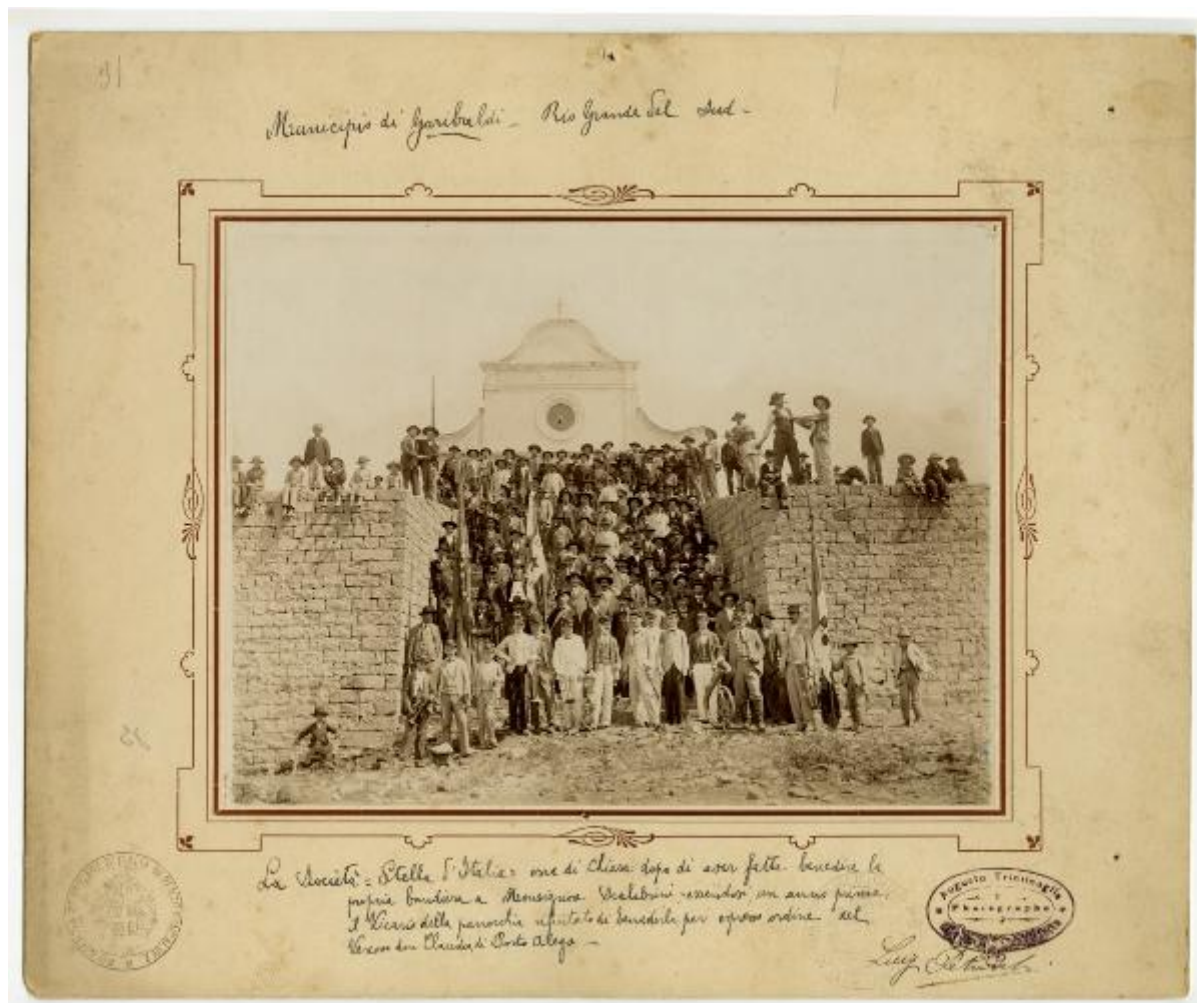 91
Municipio di Garibaldi - Rio Grande del Sud -
La Società = Stella d'Italia = esce di Chiesa dopo di aver fatto benedire la
propria bandiera a Monsignor Scalabrini essendosi un anno prima,
il Vicario della parrochia rifiutato di benedirla per espresso ordine del
Vescovo don Claudio, di Porto Alegro -
Augusto Tricincaglia
Photographo
Luiz